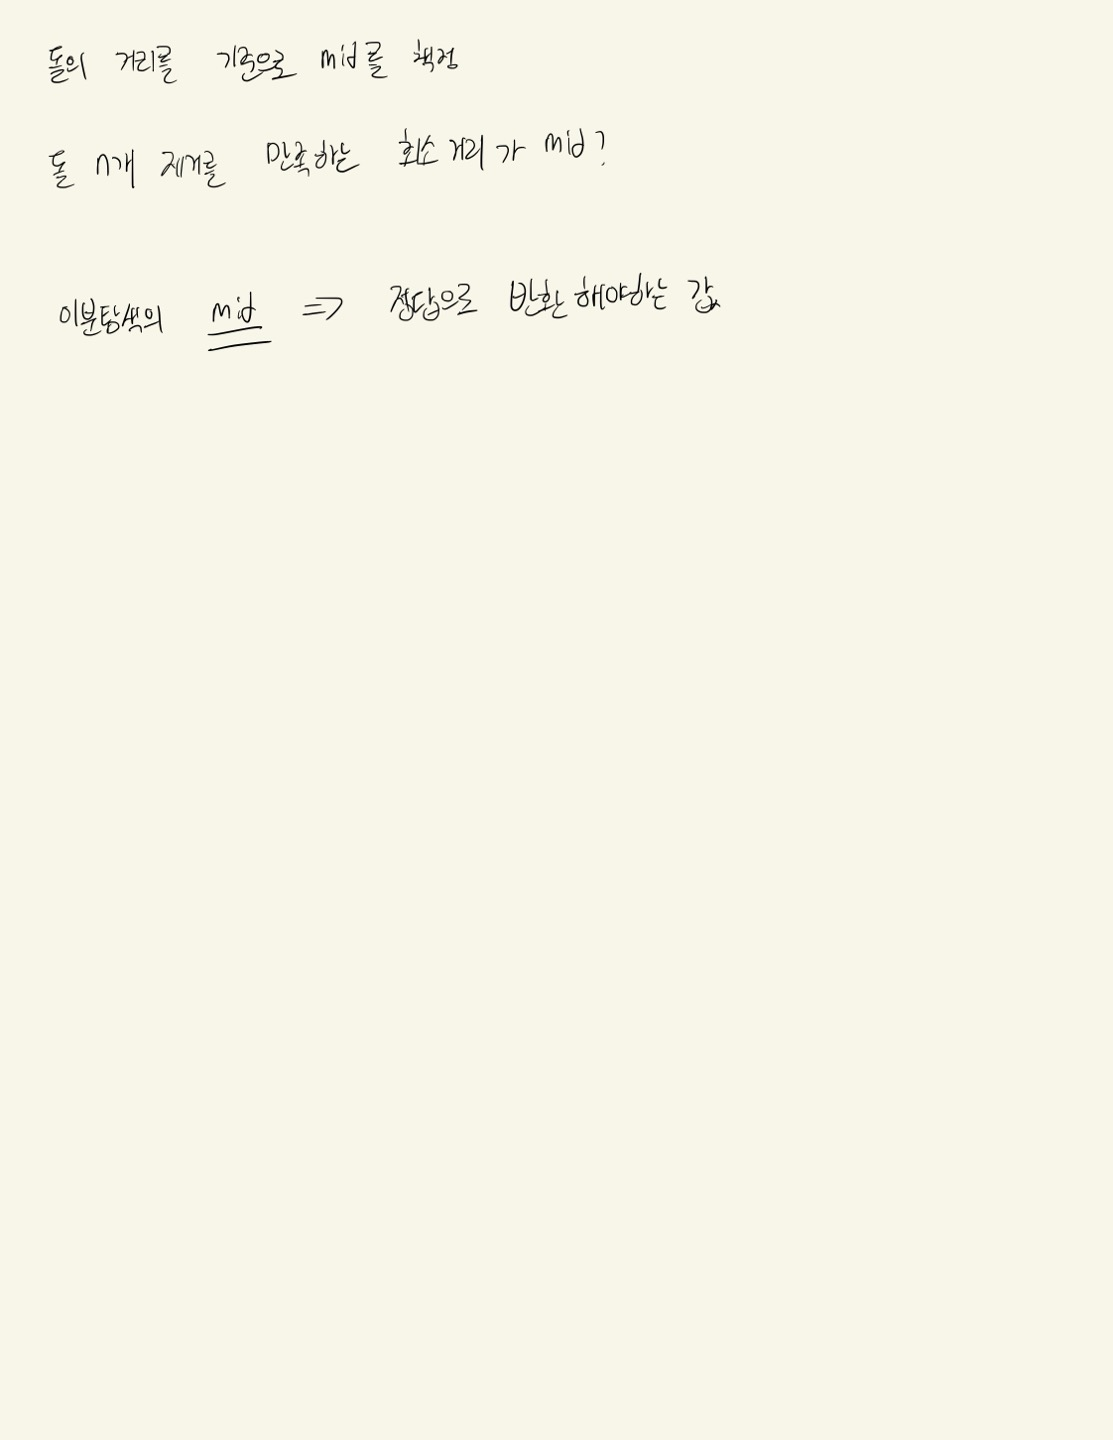 돌의 거리를 기준으로 mid를 책정
돌 n개 제거를 만족하는 최소 거리가 mid?
이분탐색의 mid => 정답으로 반환해야하는 값